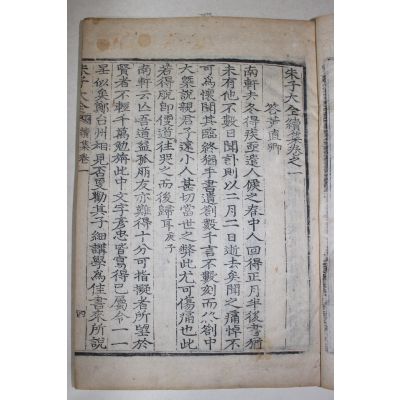 朱子大全續集卷之一
答黃直卿
南軒去冬得疾亟遣人候之春中人回得正月半後書猶
未有他不數日聞訃則以二月二日逝去矣聞之痛悼不
可為懷聞其臨終猶手書遺劄數千言不數刻而終劄中
大槩說親君子遠小人甚切當世之弊此尤可傷痛也此
若得脫即便道往哭之而後歸耳庚子
南軒云亡吾道益孤朋友亦難得十分可指擬者所望於
賢者不輕千萬勉旃此中文字忠皆寫得已屬令一一
呈似矣鄭台州相見否更勸其子細講學為佳書來所說
朱子大全 續集卷一